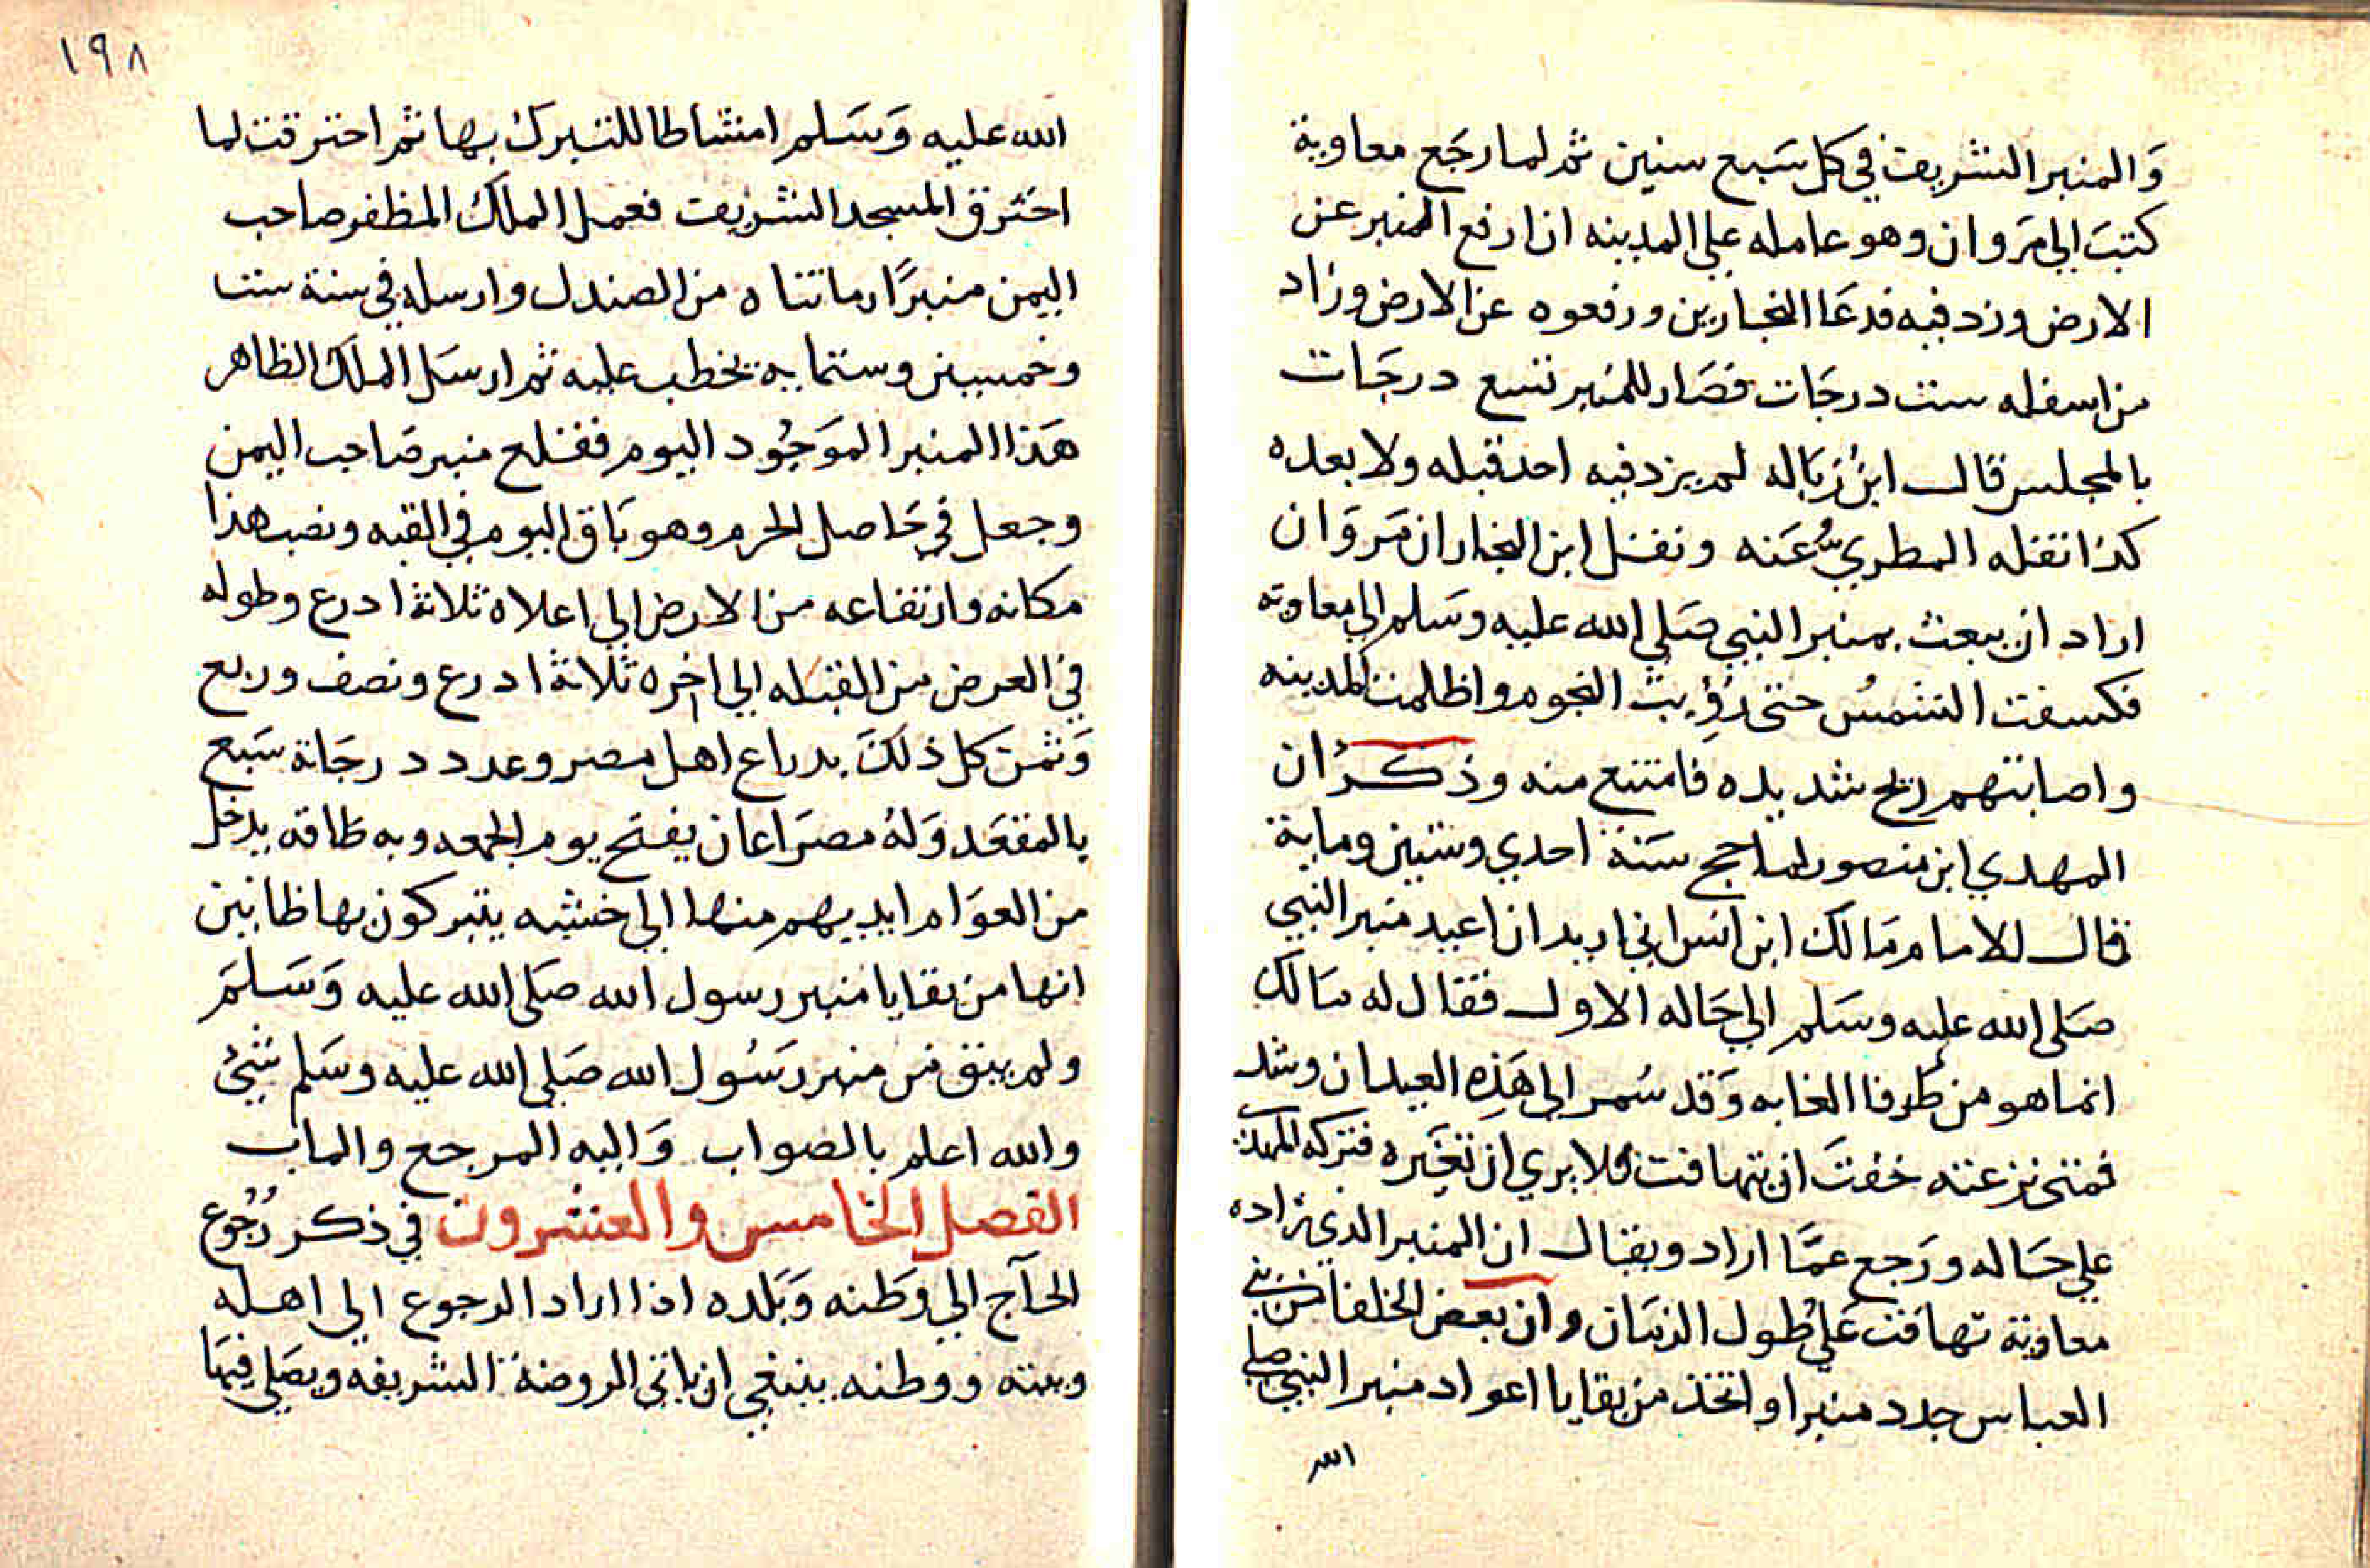 وَالمنبر الشريف في كل سَبع سنين ثم لما رجَع معاوية
كتبَ الي مَروان وهو عامله علي المدينه ان ارفع المنبر عن
الارض وزد فيه فدعَا النجارين ورفعوه عن الارض وزاد
من اسفله ست درجَات فصَار للمنبر تسع درجَات
بالمجلس قال ابنُ زبَاله لم يزد فيه احد قبله ولا بعده
كذا نقله المطريُّ عَنه ونقل ابن النجار ان مَروَان
اراد ان يبعث بمنبر النبي صَلي الله عليه وسَلم الي معاوية
فكسفت الشمسُ حتى رُؤيت النجوم واظلمت المدينه
واصابتهم ريح شديده فامتنع منه وذكرُ ان
المهدي ابن منصور لما حج سَنة احدي وستين وماية
قال للامام مَالك ابن انس اني اريد ان اعيد منبر النبي
صَلى الله عليه وسَلم الي حَاله الاول فقال له مَالك
انما هو من طرفا الغابه وَقد سُمر الي هَذِه العيدان وشد
فمتى نزعته خفتَ ان يتهافت فلا يري ان تغيَره فتركه المهدي
علي حَاله ورَجع عمَّا اراد ويقال ان المنبر الذي زاده
معاوية تهافت عَلي طول الزمَان وان بعض الخلفا من بني
العباس جدد منبرا واتخذ من بقايا اعواد منبر النبي صلي
الله
١٩٨
الله عليه وَسَلم امشاطا للتبرك بها ثم احترقت لما
احترق المسجد الشريف فعمل الملك المظفر صاحب
اليمن منبرًا رمانتاه من الصندل وارسله في سنة ست
وخمسين وستمايه يخطب عليه ثم ارسَل الملك الظاهر
هَذا المنبر الموَجُود اليوم فقلع منبر صَاحب اليمن
وجعل في حَاصل الحرم وهو بَاق اليوم في القبه ونصب هذا
مكانه وارتفاعه من الارض الي اعلاه ثلاثة ادرع وطوله
في العرض من القبله الي اخره ثلاثة ادرع ونصف وربع
وَثمن كل ذلكَ بدراع اهل مصر وعدد درجَاته سَبع
بالمقعَد وَلهُ مصرَاعان يفتح يوم الجمعه وبه طاقه يدخل
من العوَام ايديهم منها الي خشبه يتبركون بها ظانين
انها من بقايا منبر رسول الله صَلى الله عليه وَسَلمَ
ولم يبق من منبر رسَُول الله صَلي الله عليه وسَلم شيئ
والله اعلم بالصواب وَاليه المرجع والماب
الفصل الخامس والعشرون في ذكر رُجُوع
الحآج الي وَطنه وَبَلده اذا اراد الرجوع الي اهله
وبيته ووطنه ينبغي ان ياتي الروضة الشريفه ويصَلي فيهَا